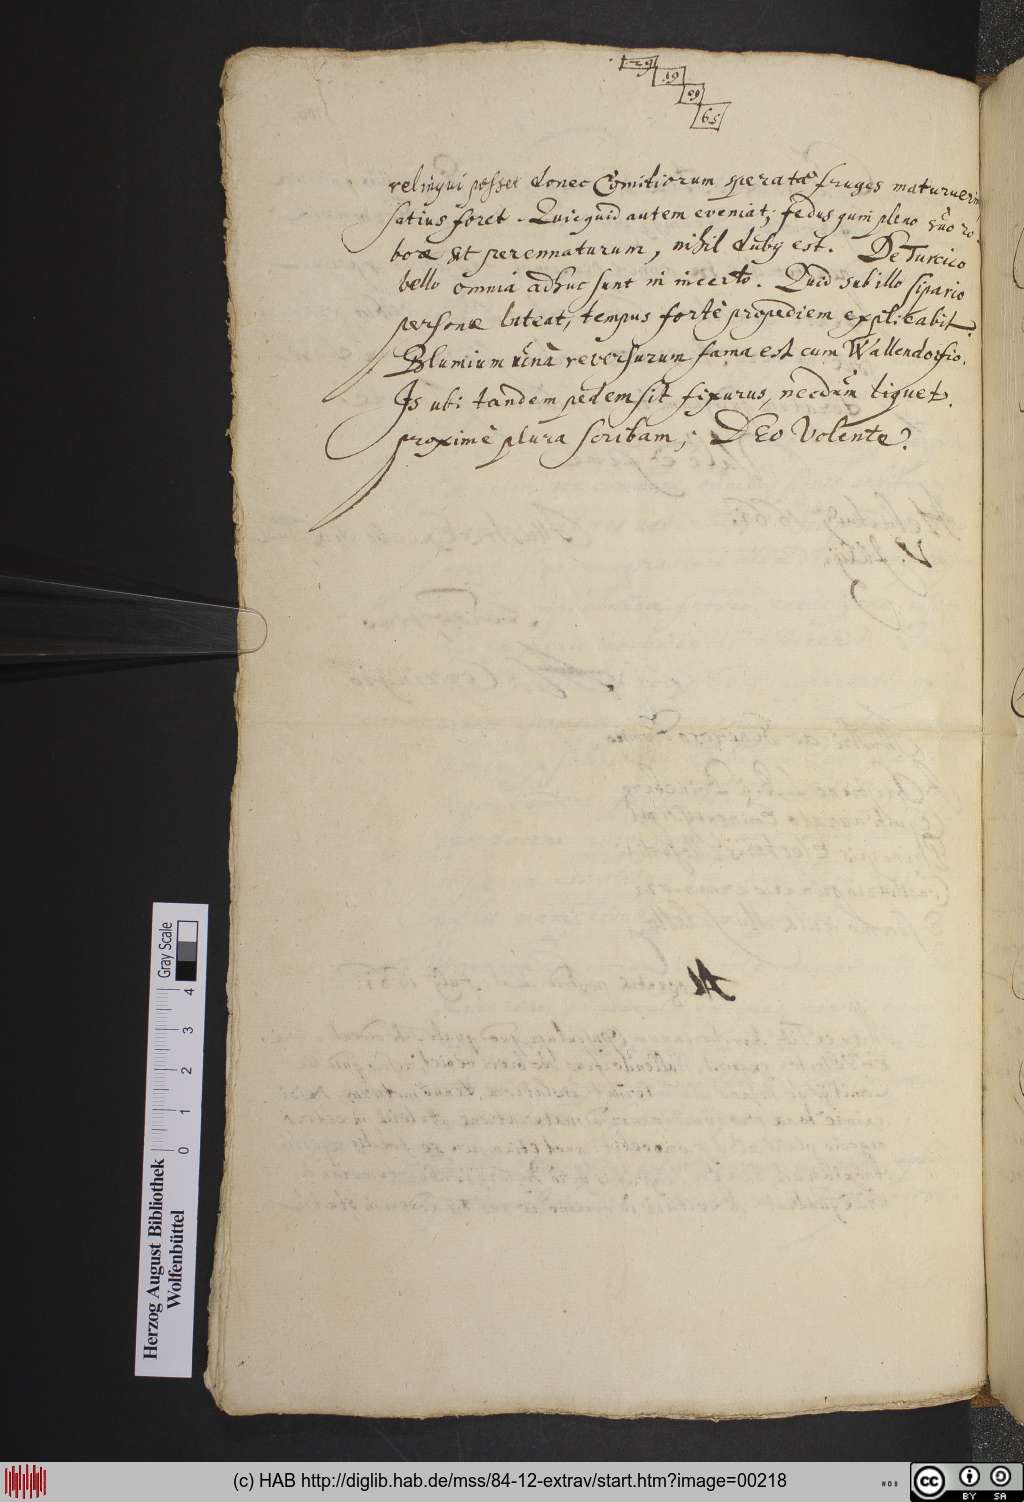 129
19
69
65
relinqui posset donec Comitiorum speratæ fruges maturuerin
satius foret. Quicquid autem eveniat, fædus quin pleno suo ro-
boræ sit perennaturum, nihil duby est. De Turcico
bello omnia adhuc sunt in incerto. Quid sub illo sipario
personæ lateat, tempus fortè propediem explicabit.
Blumium reversurum fama est cum Wallendorfio.
Is ubi tandem pedem sit fixurus, necdum liquet.
proximè plura scribam, DEO Volente.
Gray Scale
0 1 2 3 4
Herzog August Bibliothek
Wolfenbüttel
(c) HAB http://diglib.hab.de/mss/84-12-extrav/start.htm?image=00218
WDB
cc
BY SA